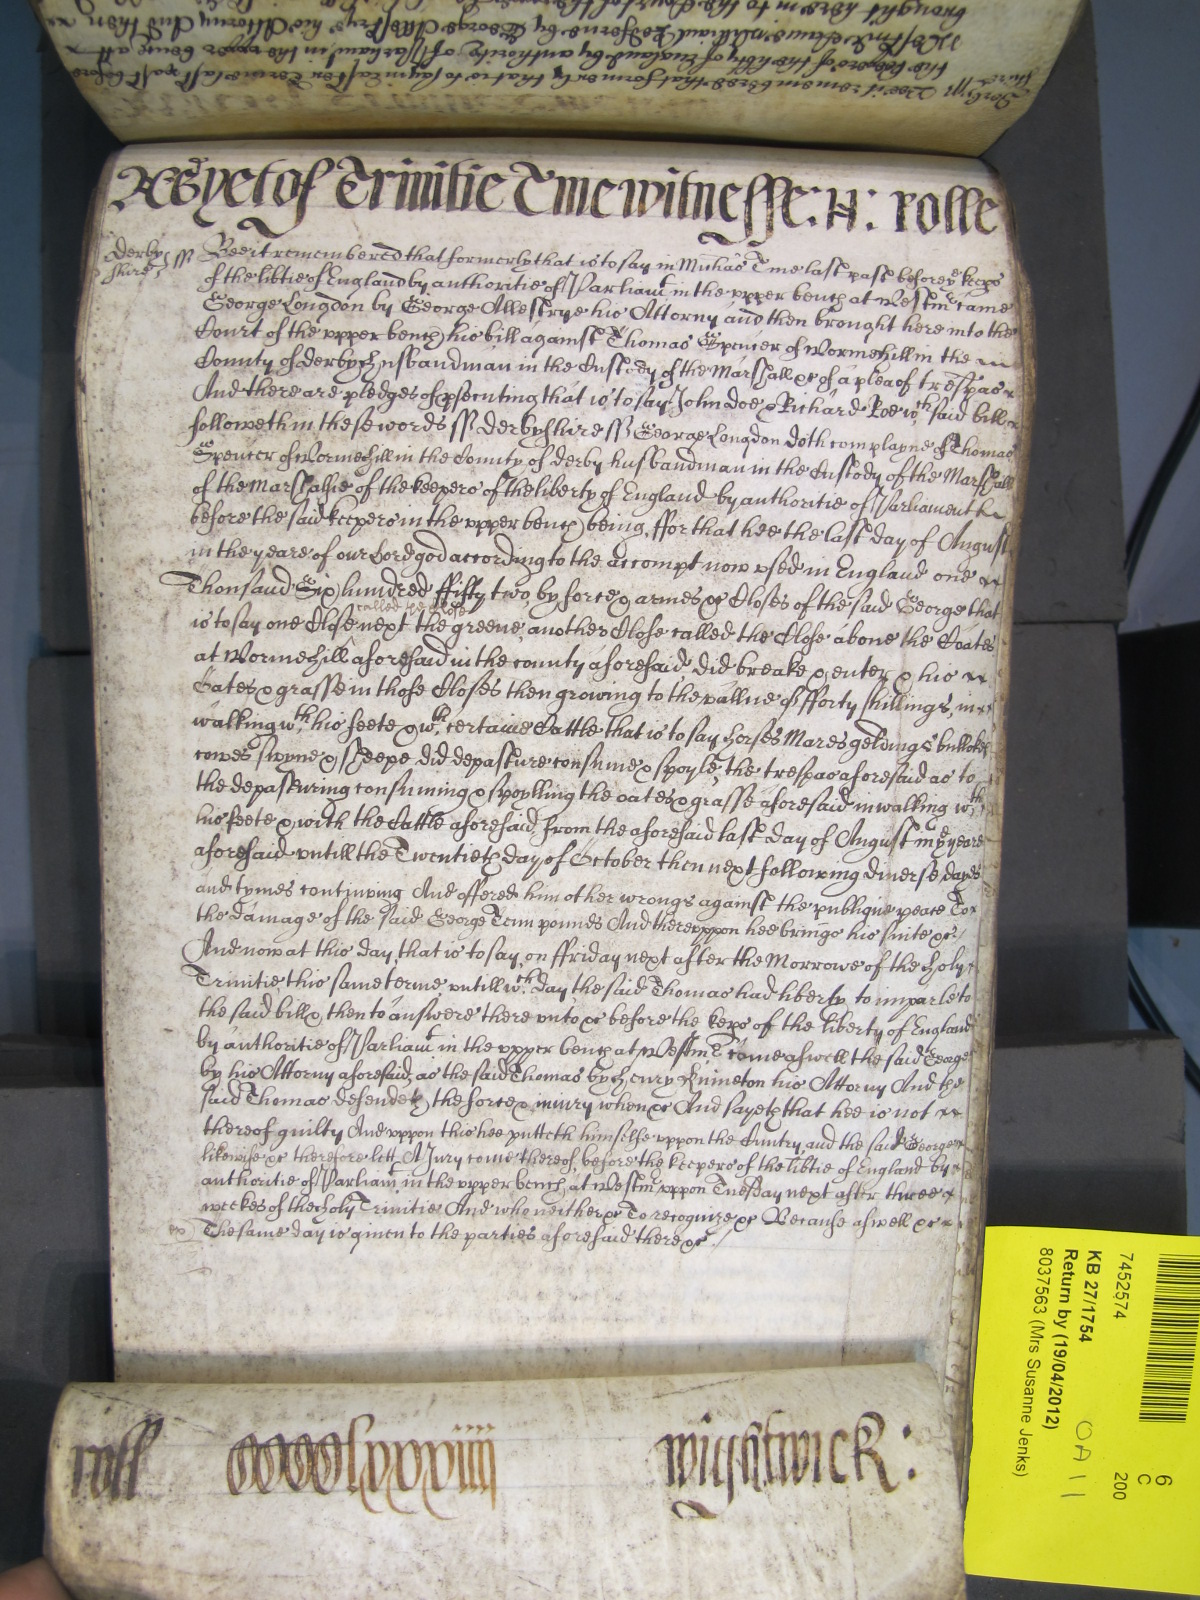 As yet of Trinitie Tme witnesse: H: Rolle
Derby
shire ss Bee it remembered that formerly that is to say in Michas Tme last past before ye keeps
of the libtie of England by authoritie of Parliamt in the upper bench at Westmr came
George Longdon by George Allestrye his Attorny and then brought here into the
Court of the upper bench his bill against Thomas Spencer of Wormehill in the
County of derby husbandman in the Custody of the Marshall &c of a plea of trespas
And there are pledges of psecuting that is to say John doe & Richard Roe wch said bill
followeth in these words ss derbyshire ss George Longdon doth complayne of Thomas
Spencer of Wormehill in the County of derby husbandman in the Custody of the Marshall
of the Marshalsie of the keepers of the liberty of England by authoritie of Parliament
before the said keepers in the upper bench being, ffor that hee the last day of August
in the yeare of our Lord god according to the accompt now used in England one
Thousand Six hundred ffifty two, by force & armes &c Closes of the said George that
called the Close
is to say one Close next the greene, another Close called the Close above the Coates
at Wormehill aforesaid in the county aforesaid did breake & enter & his
Oates & grasse in those Closes then growing to the vallue of fforty shillings, in
walking wth his feete & wth certaine Cattle that is to say horses Mares geldings bullockes
cowes swyne & sheepe did depasture consume & spoyle, the trespas aforesaid as to
the depasturing consuming & spoylling the oates & grasse aforesaid in walking wth
his feete & with the Cattle aforesaid, from the aforesaid last day of August in ye yeare
aforesaid untill the Twentieth day of October then next following diverse dayes
and tymes continuing And offered him other wrongs against the publique peace To
the damage of the said George Tenn pounds And thereuppon hee brings his suite &c/
And now at this day, that is to say, on ffriday next after the Morrowe of the holy
Trinitie this same terme, untill wch day the said Thomas had liberty to imparle to
the said bill & then to answere there unto &c before the keps of the liberty of England
by authoritie of Parliamt in the upper bench at Westmr come aswell the said George
by his Attorny aforesaid as the said Thomas by Henry his Attorny And the
said Thomas defendeth the force & iniury when &c And sayeth that hee is not
thereof guilty And uppon this hee putteth himselfe uppon the Cuntry, and the said George
likewise &c therefore lett A Jury come thereof before the keepers of the libtie of England by
authoritie of Parliamt in the upper bench at Westmr uppon Tuesday next after three
weekes of the holy Trinitie And who neither &c To recognize &c Because aswell &c
The same day is given to the parties aforesaid there &c /
roll CCCClxxxiiii Wightwick:
7452574
KB 27/1754
Return by (19/04/2012)
8037563 (Mrs Susanne Jenks)
6
C
200
OA 11